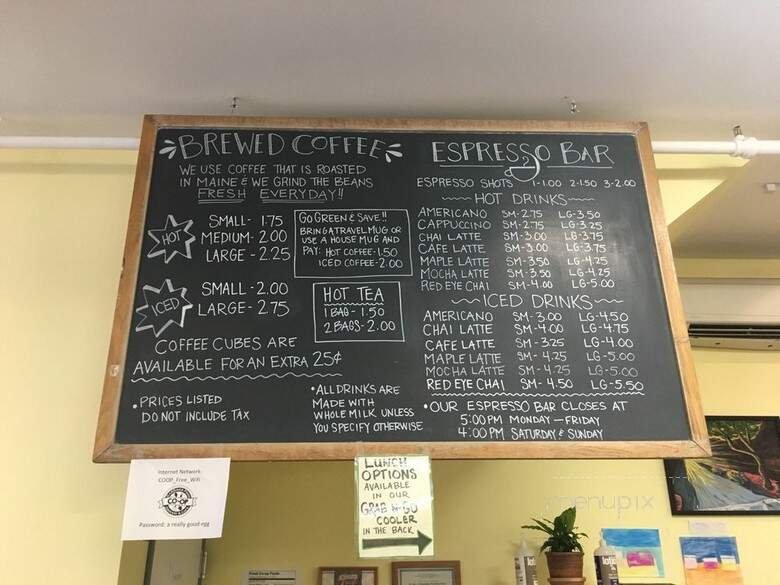 BREWED COFFEE
WE USE COFFEE THAT IS ROASTED
IN MAINE & WE GRIND THE BEANS
FRESH EVERYDAY!!
HOT
SMALL- 1.75
MEDIUM- 2.00
LARGE - 2.25
GO GREEN & SAVE!!
BRING A TRAVEL MUG OR
USE A HOUSE MUG AND
PAY: HOT COFFEE-1.50
ICED COFFEE-2.00
ICED
SMALL - 2.00
LARGE- 2.75
HOT TEA
1 BAG - 1.50
2 BAGS- 2.00
COFFEE CUBES ARE
AVAILABLE FOR AN EXTRA 25¢
•PRICES LISTED
DO NOT INCLUDE TAX
•ALL DRINKS ARE
MADE WITH
WHOLE MILK UNLESS
YOU SPECIFY OTHERWISE
ESPRESSO BAR
ESPRESSO SHOTS 1-1.00 2-1.50 3-2.00
HOT DRINKS
AMERICANO SM-2.75 LG-3.50
CAPPUCCINO SM-2.75 LG-3.25
CHAI LATTE SM-3.00 LG-3.75
CAFE LATTE SM-3.00 LG-3.75
MAPLE LATTE SM-3.50 LG-4.25
MOCHA LATTE SM-3.50 LG-4.25
RED EYE CHAI SM-4.00 LG-5.00
ICED DRINKS
AMERICANO SM-3.00 LG-4.50
CHAI LATTE SM-4.00 LG-4.75
CAFE LATTE SM-3.25 LG-4.00
MAPLE LATTE SM-4.25 LG-5.00
MOCHA LATTE SM-4.25 LG-5.00
RED EYE CHAI SM-4.50 LG-5.50
•OUR ESPRESSO BAR CLOSES AT
5:00 PM MONDAY-FRIDAY
4:00 PM SATURDAY & SUNDAY
Internet Network:
COOP_Free_Wifi
CO-OP
Password: a really good egg
LUNCH
OPTIONS
AVAILABLE
IN OUR
GRAB N GO
COOLER
IN THE BACK
menupix